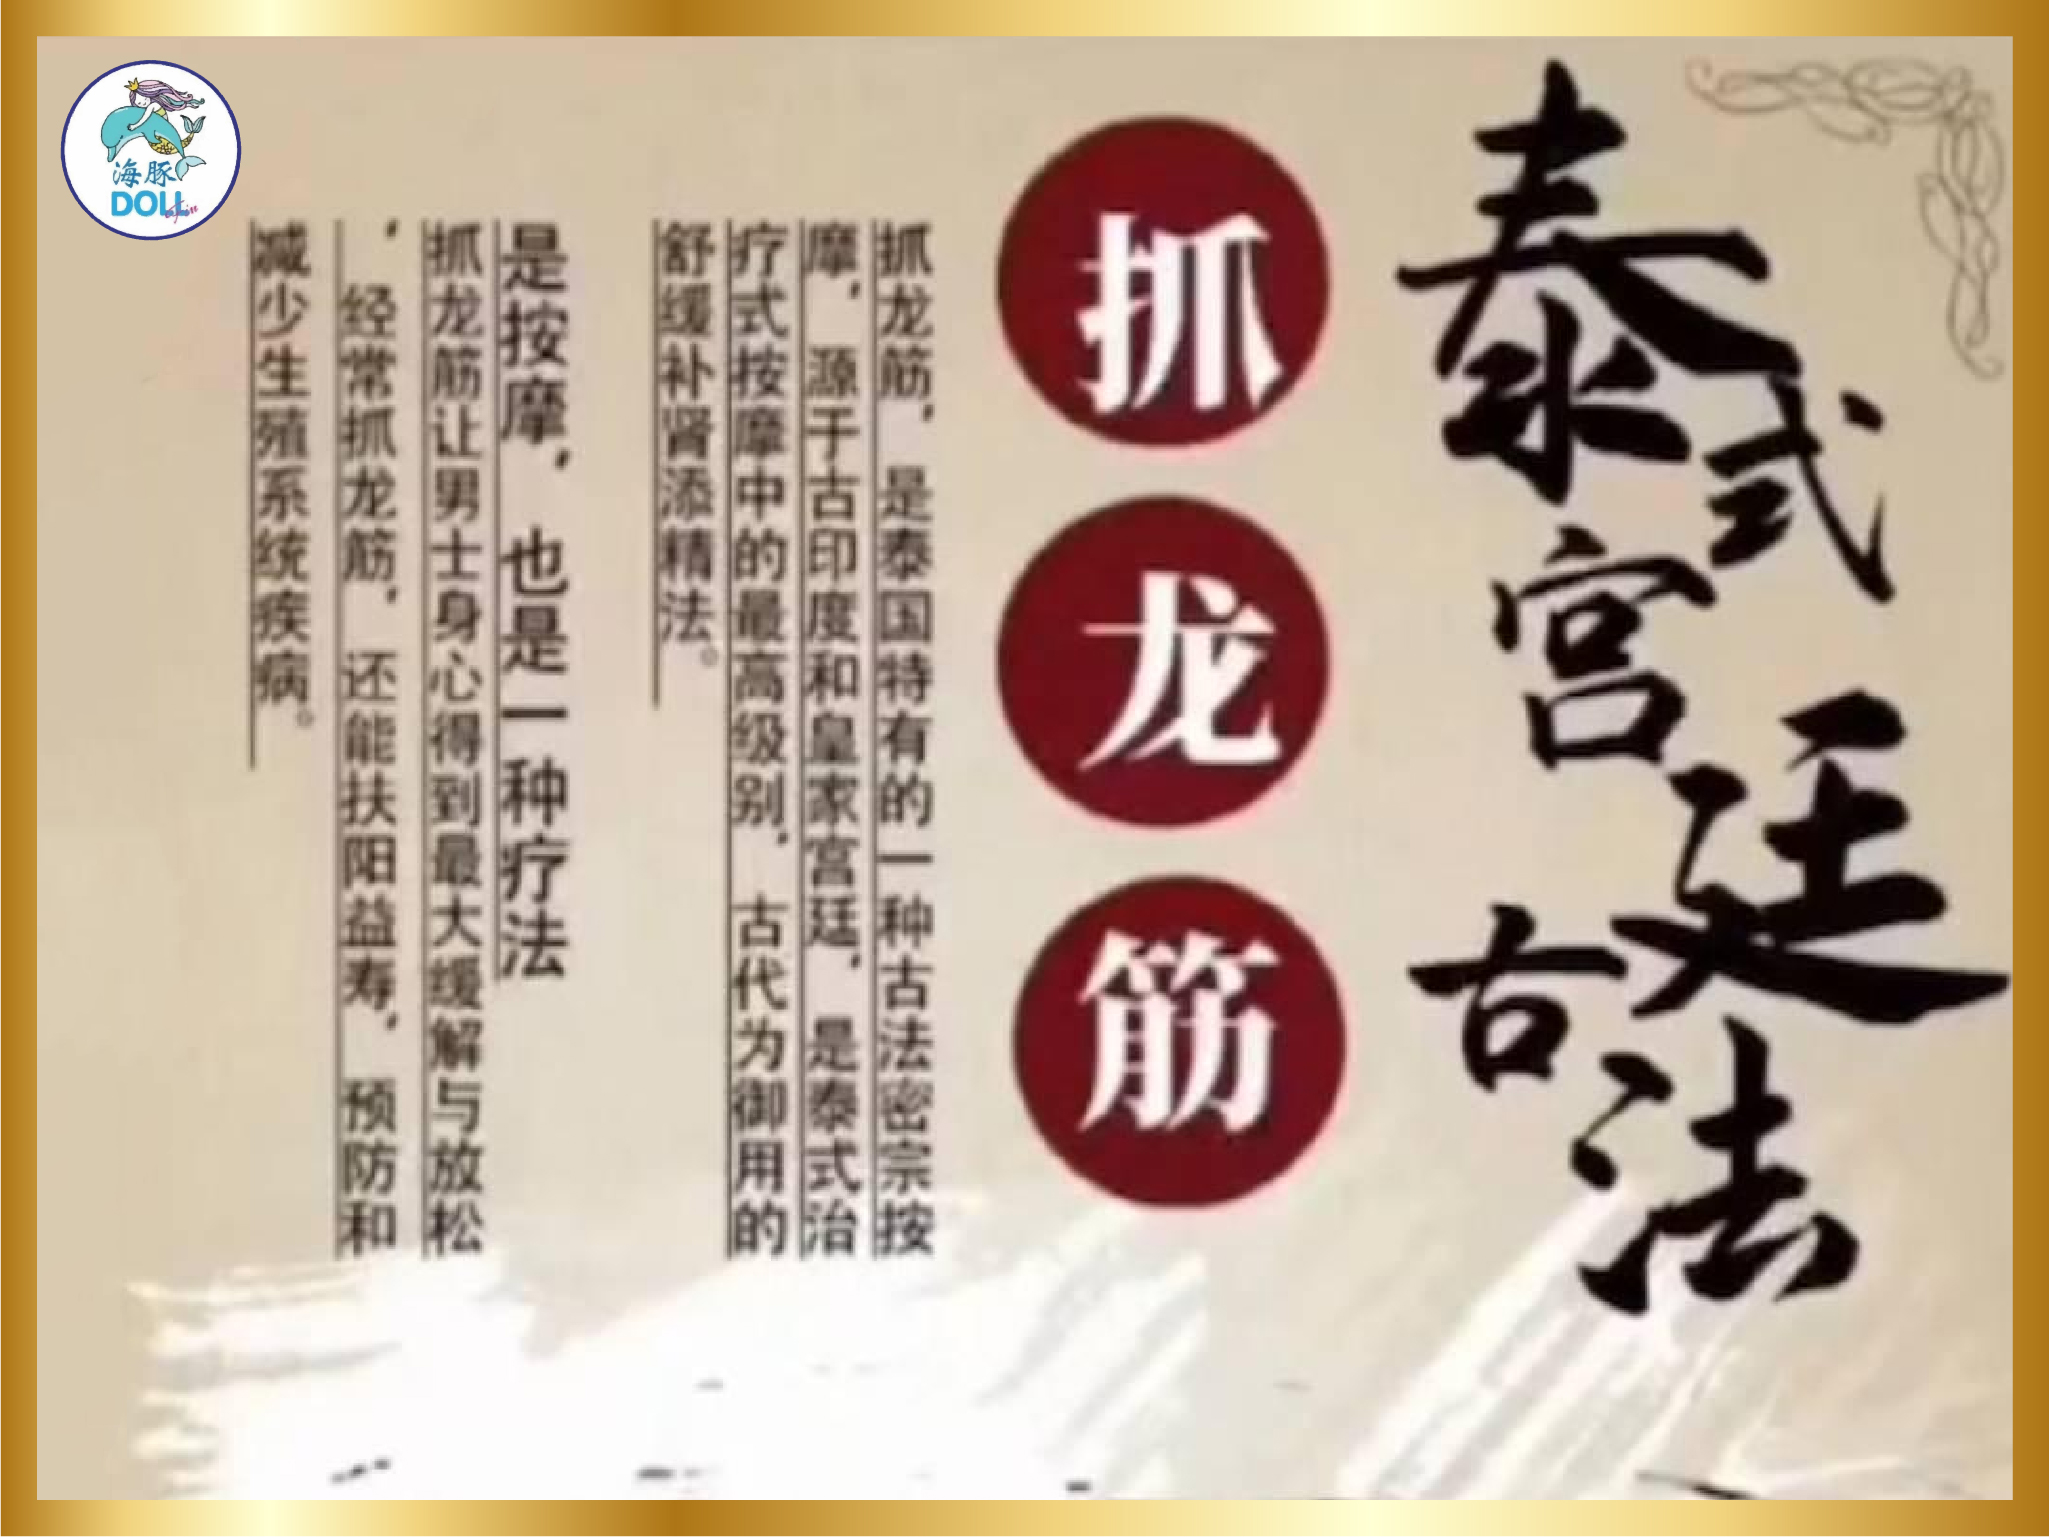 泰式宫廷古法
抓龙筋
抓龙筋，是泰国特有的一种古法密宗按
摩，源于古印度和皇家宫廷，是泰式治
疗式按摩中的最高级别，古代为御用的
舒缓补肾添精法。
是按摩，也是一种疗法
抓龙筋让男士身心得到最大缓解与放松
，经常抓龙筋，还能扶阳益寿，预防和
减少生殖系统疾病。
海豚